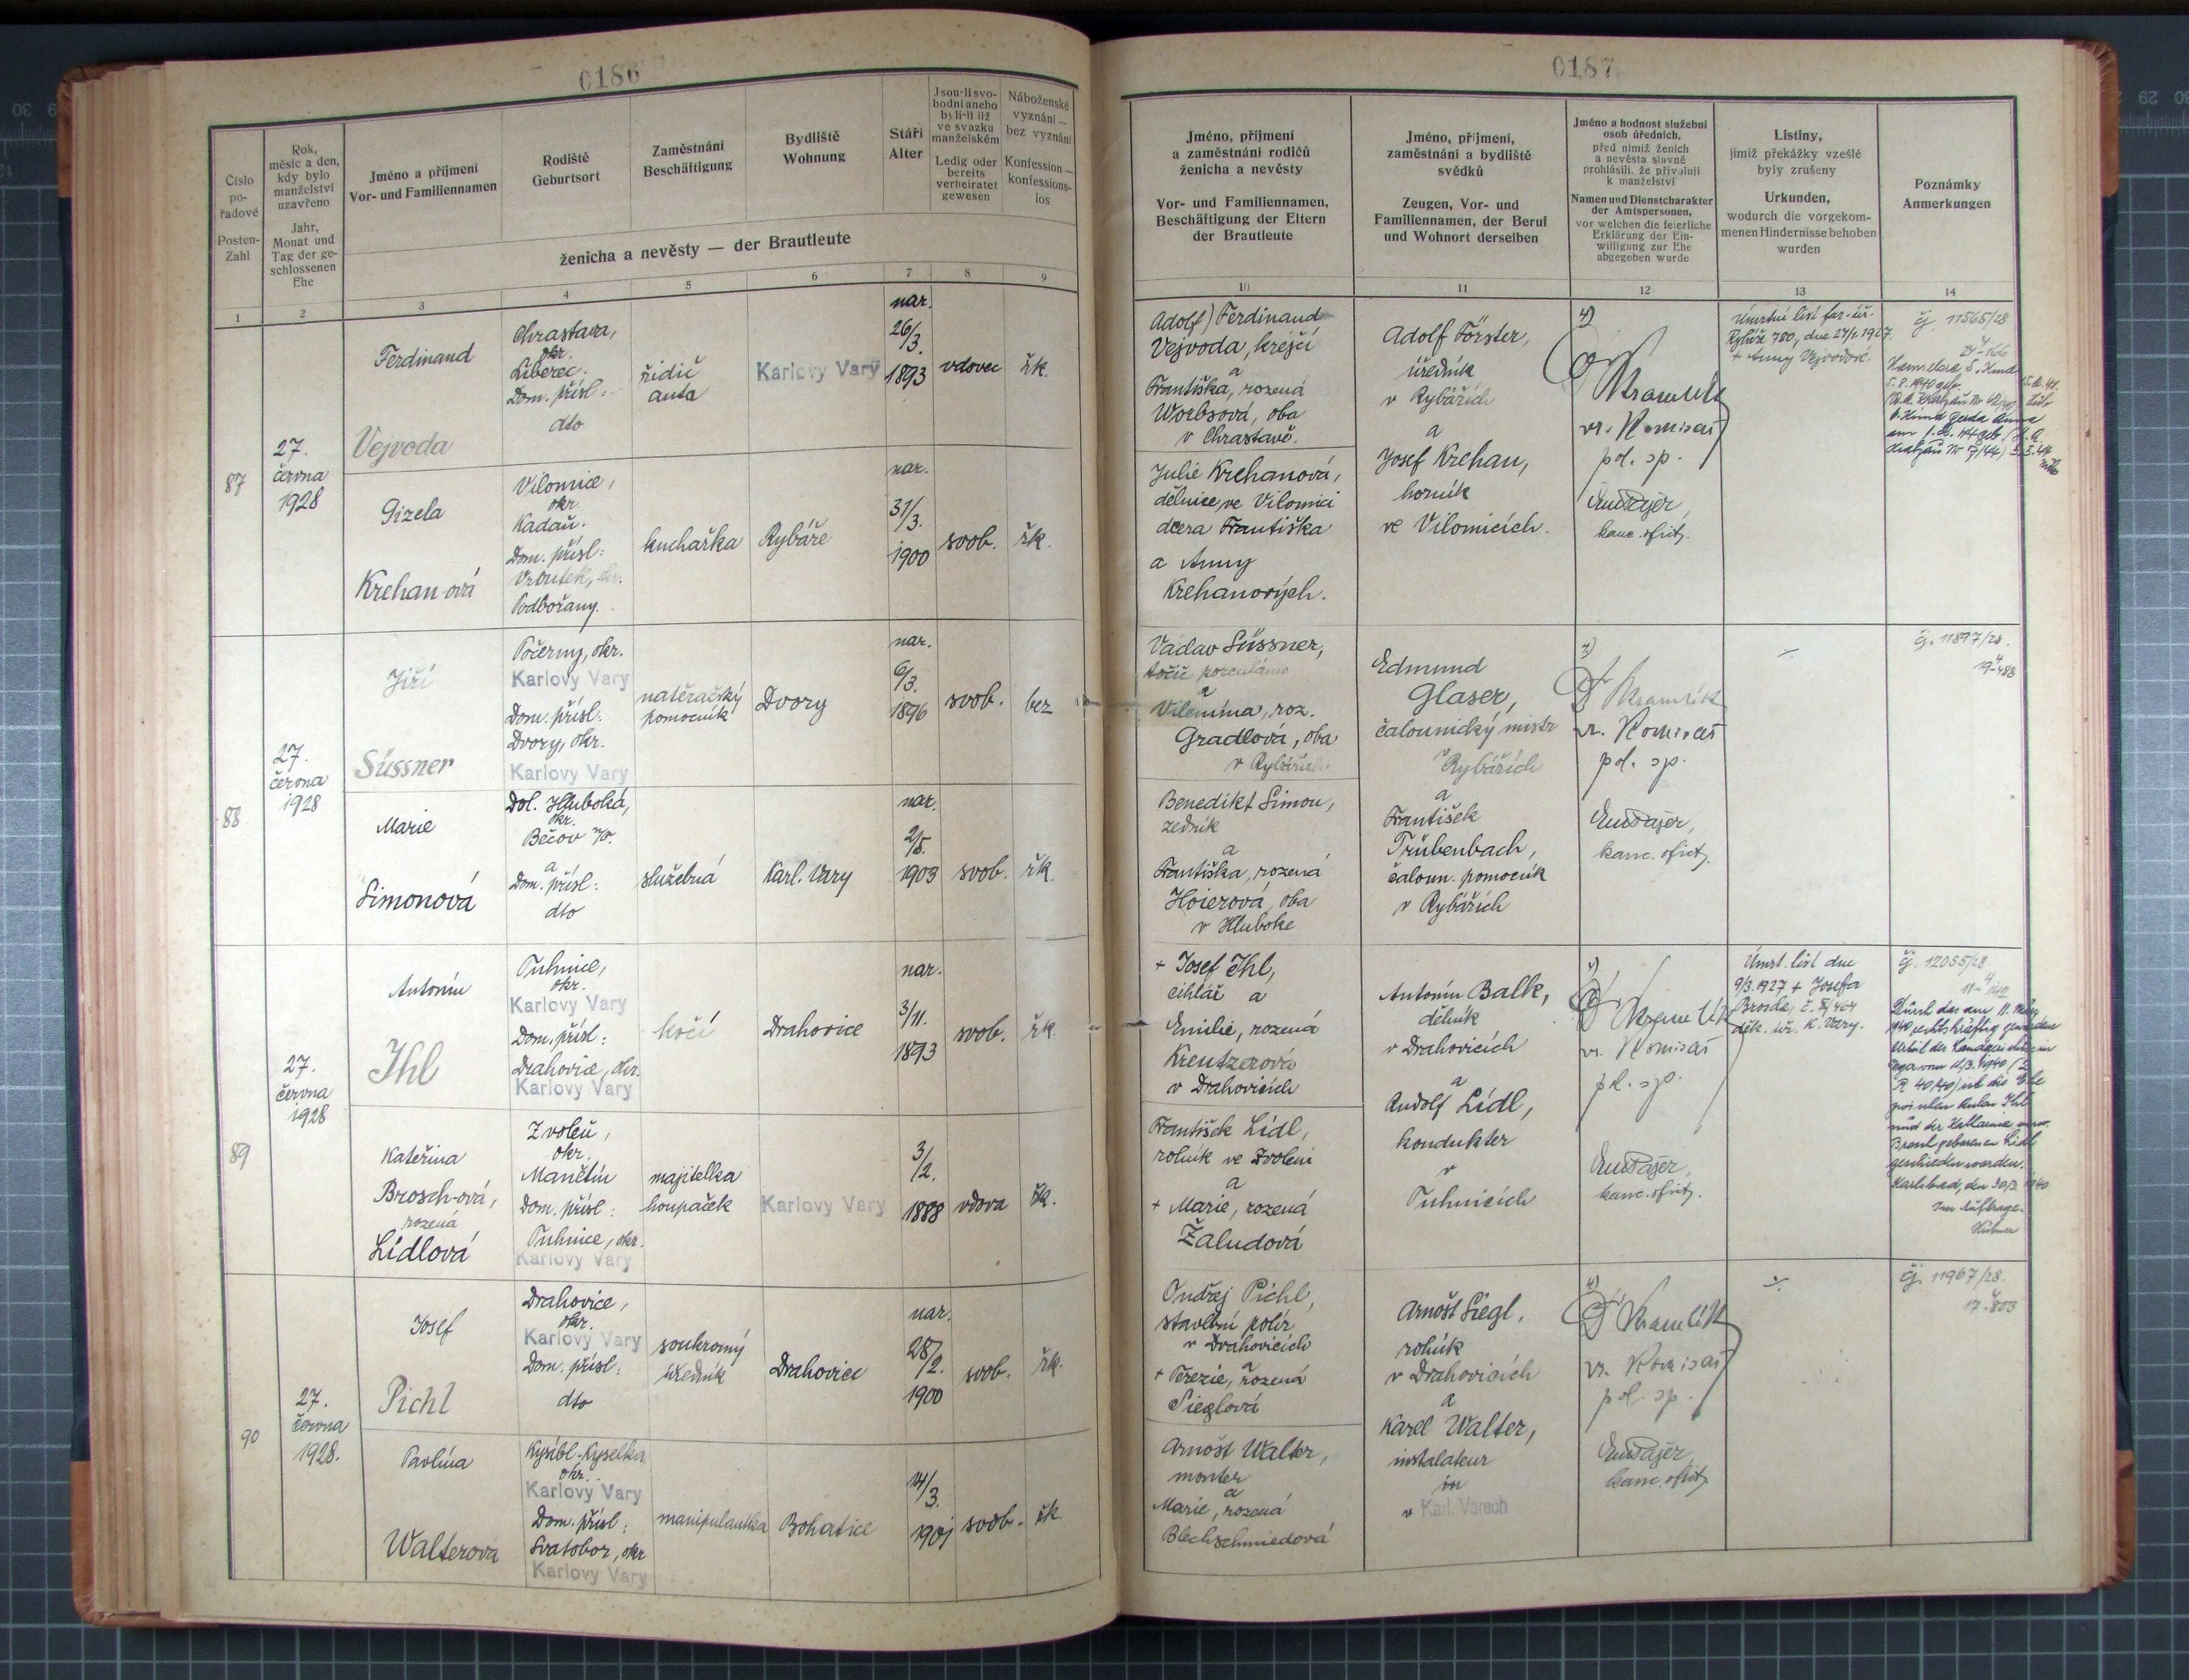 0186
Číslo pořadové
Posten-Zahl
Rok, měsíc a den, kdy bylo manželství uzavřeno
Jahr, Monat und Tag der geschlossenen Ehe
Jméno a příjmení
Vor- und Familiennamen
Rodiště
Geburtsort
Zaměstnání
Beschäftigung
Bydliště
Wohnung
Stáří
Alter
Jsou-li svobodni anebo byli-li již ve svazku manželském
Ledig oder bereits verheiratet gewesen
Náboženské vyznání — bez vyznání
Konfession — konfessionslos
ženicha a nevěsty — der Brautleute
1 2 3 4 5 6 7 8 9
87
27.
června
1928
Ferdinand
Vejvoda
Chrastava,
okr.
Liberec.
Dom. přísl.:
dto
řidič
auta
Karlovy Vary
nar.
26/3.
1893
vdovec
řk.
Gizela
Krehan-ová
Vilomice,
okr.
Kadaň.
Dom. přísl:
Vroutek, okr.
Podbořany.
kuchařka
Rybáře
nar.
31/3.
1900
svob.
řk.
88
27.
června
1928
Jiří
Süssner
Počerny, okr.
Karlovy Vary
Dom. přísl:
Dvory, okr.
Karlovy Vary
natěračský
pomocník
Dvory
nar.
6/3.
1896
svob.
bez
Marie
Simonová
Dol. Hluboká,
okr.
Bečov
a
Dom. přísl:
dto
služebná
Karl. Vary
nar.
2/5.
1903
svob.
řk.
89
27.
června
1928
Antonín
Ihl
Tuhnice,
okr.
Karlovy Vary
Dom. přísl:
Drahovice, okr.
Karlovy Vary
kočí
Drahovice
nar.
3/11.
1893
svob.
řk.
Kateřina
Brosch-ová,
rozená
Lídlová
Zvoleň,
okr.
Manětín
Dom. přísl:
Tuhnice, okr.
Karlovy Vary
majitelka
houpaček
Karlovy Vary
3/2.
1888
vdova
řk.
90
27.
června
1928.
Josef
Pichl
Drahovice,
okr.
Karlovy Vary
Dom. přísl:
dto
soukromý
úředník
Drahovice
nar.
28/2.
1900
svob.
řk.
Pavlína
Walterová
Kysibl-Kyselka
okr.
Karlovy Vary
Dom. přísl:
Svatobor, okr
Karlovy Vary
manipulantka
Bohatice
14/3.
1901
svob.
řk.
0187
Jméno, příjmení a zaměstnání rodičů ženicha a nevěsty
Vor- und Familiennamen, Beschäftigung der Eltern der Brautleute
Jméno, příjmení, zaměstnání a bydliště svědků
Zeugen, Vor- und Familiennamen, der Beruf und Wohnort derselben
Jméno a hodnost služební osob úředních, před nimiž ženich a nevěsta slavně prohlásili, že přivolují k manželství
Namen und Dienstcharakter der Amtspersonen, vor welchen die feierliche Erklärung der Einwilligung zur Ehe abgegeben wurde
Listiny, jimiž překážky vzešlé byly zrušeny
Urkunden, wodurch die vorgekommenen Hindernisse behoben wurden
Poznámky
Anmerkungen
10 11 12 13 14
Adolf) Ferdinand
Vejvoda, krejčí
a
Františka, rozená
Worbsová, oba
v Chrastavě.
Julie Krehanová,
dělnice, ve Vilomici
dcera Františka
a Anny
Krehanových.
Adolf Förster,
úředník
v Rybářích
a
Josef Krehan,
horník
ve Vilomicích.
vr. Komisař
pol. sp.
kanc. ofic.
Úmrtní list far. úř.
Rybáře 780, dne 1927
+ Anny Vejvodové.
čj. 11565/28
Václav Süssner,
točič porculánu
a
Vilemína, roz.
Gradlová, oba
v Rybářích.
Benedikt Simon,
zedník
a
Františka, rozená
Hoierová, oba
v Hluboke
Edmund
Glaser,
čalounický mistr
v
Rybářích
a
František
Trübenbach,
čaloun. pomocník
v Rybářích
vr. Komisař
pol. sp.
kanc. ofic.
čj. 11897/28.
+ Josef Ihl,
cihlář a
Emilie, rozená
Kreutzerová
v Drahovicích
František Lídl,
rolník ve Zvoleni
a
+ Marie, rozená
Žaludová
Antonín Balk,
dělník
v Drahovicích
a
Rudolf Lídl,
kondukter
v
Tuhnicích
vr. Komisař
pol. sp.
kanc. ofic.
Úmrt. list dne
9/3.1927 + Josefa
Brosche,
děk. úř. K. Vary.
čj. 12055/28
Durch das am 11. März
1940 rechtskräftig gewordene
Urteil des Landgerichtes in
Eger vom
R 40/40) ist die Ehe
zwischen Anton Ihl
und der Katharina verw.
Brosch geborenen Lidl
geschieden worden.
Karlsbad, den 30/3. 1940
Im Auftrage.
Ondřej Pichl,
stavební polír
v Drahovicích
a
+ Terezie, rozená
Sieglová
Arnošt Walter,
monter
a
Marie, rozená
Blechschmiedová
Arnošt Siegl,
rolník
v Drahovicích
a
Karel Walter,
instalateur
v Karl. Varech
vr. Komisař
pol. sp.
kanc. ofic.
čj. 11967/28.